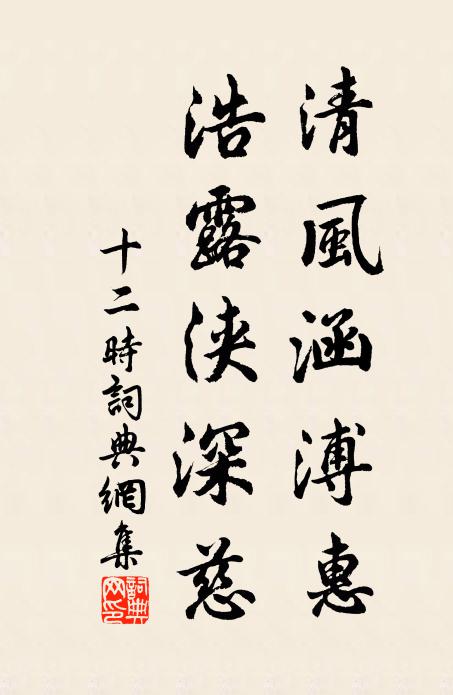 清風涵溥惠
浩露浹深慈
十二時詞典網集
詞典網印